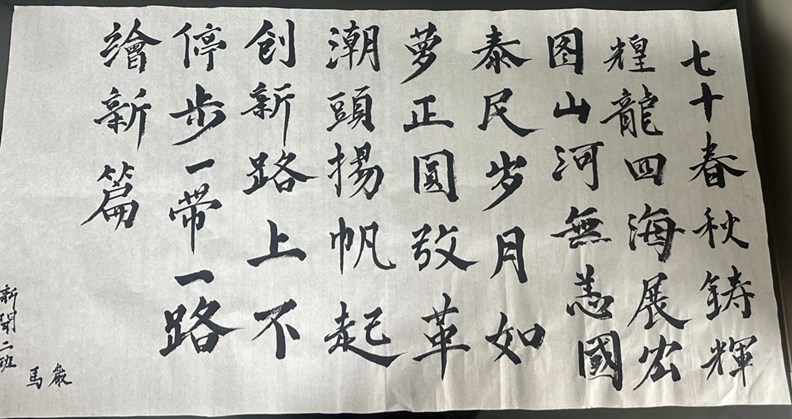 七十春秋鋳輝
煌龍四海展宏
图山河無恙國
泰民岁月如
夢正圓改革
潮頭揚帆起
创新路上不
停步一帶一路
繪新篇
新聞二班